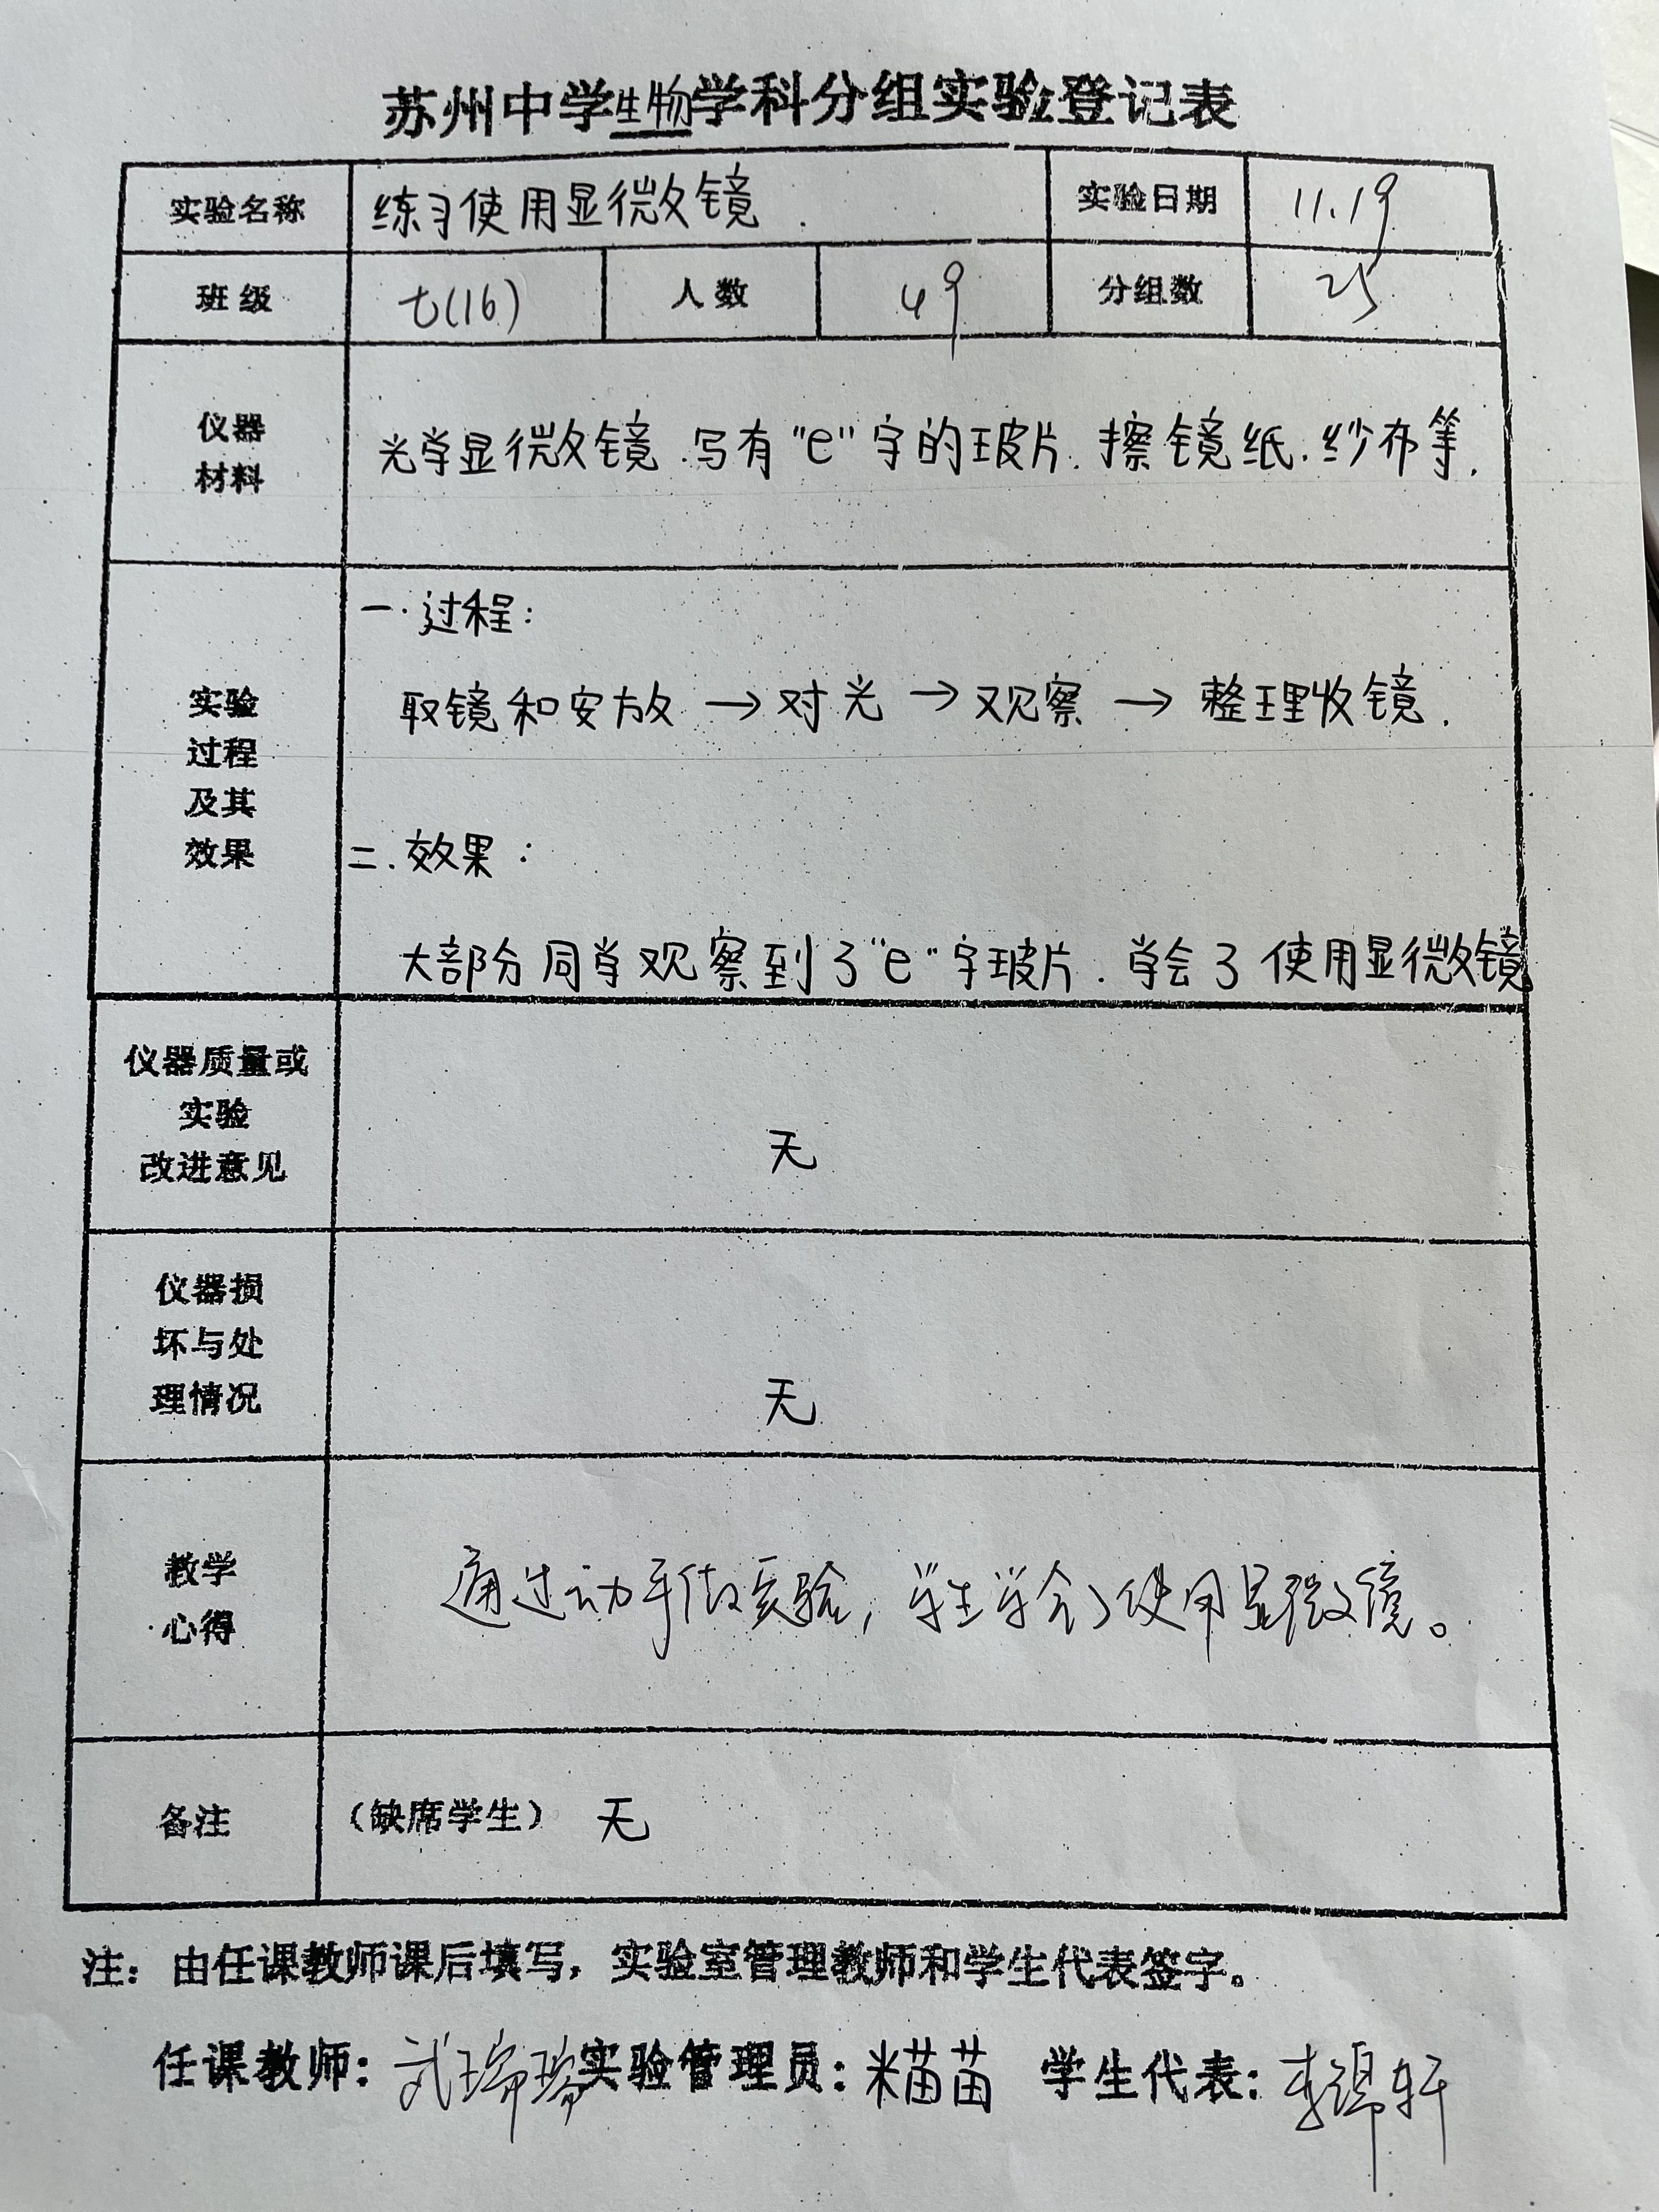 苏州中学生物学科分组实验登记表
实验名称 练习使用显微镜. 实验日期 11.19
班级 七(16) 人数 49 分组数 25
仪器
材料
光学显微镜.写有"e"字的玻片.擦镜纸.纱布等.
实验
过程
及其
效果
一.过程:
取镜和安放→对光→观察→整理收镜.
二.效果:
大部分同学观察到了"e"字玻片.学会了使用显微镜
仪器质量或
实验
改进意见
无
仪器损
坏与处
理情况
无
教学
心得
通过动手做实验,学生学会了使用显微镜。
备注 (缺席学生) 无
注: 由任课教师课后填写, 实验室管理教师和学生代表签字。
任课教师: 武瑞瑞 实验管理员: 米苗苗 学生代表: 李 轩